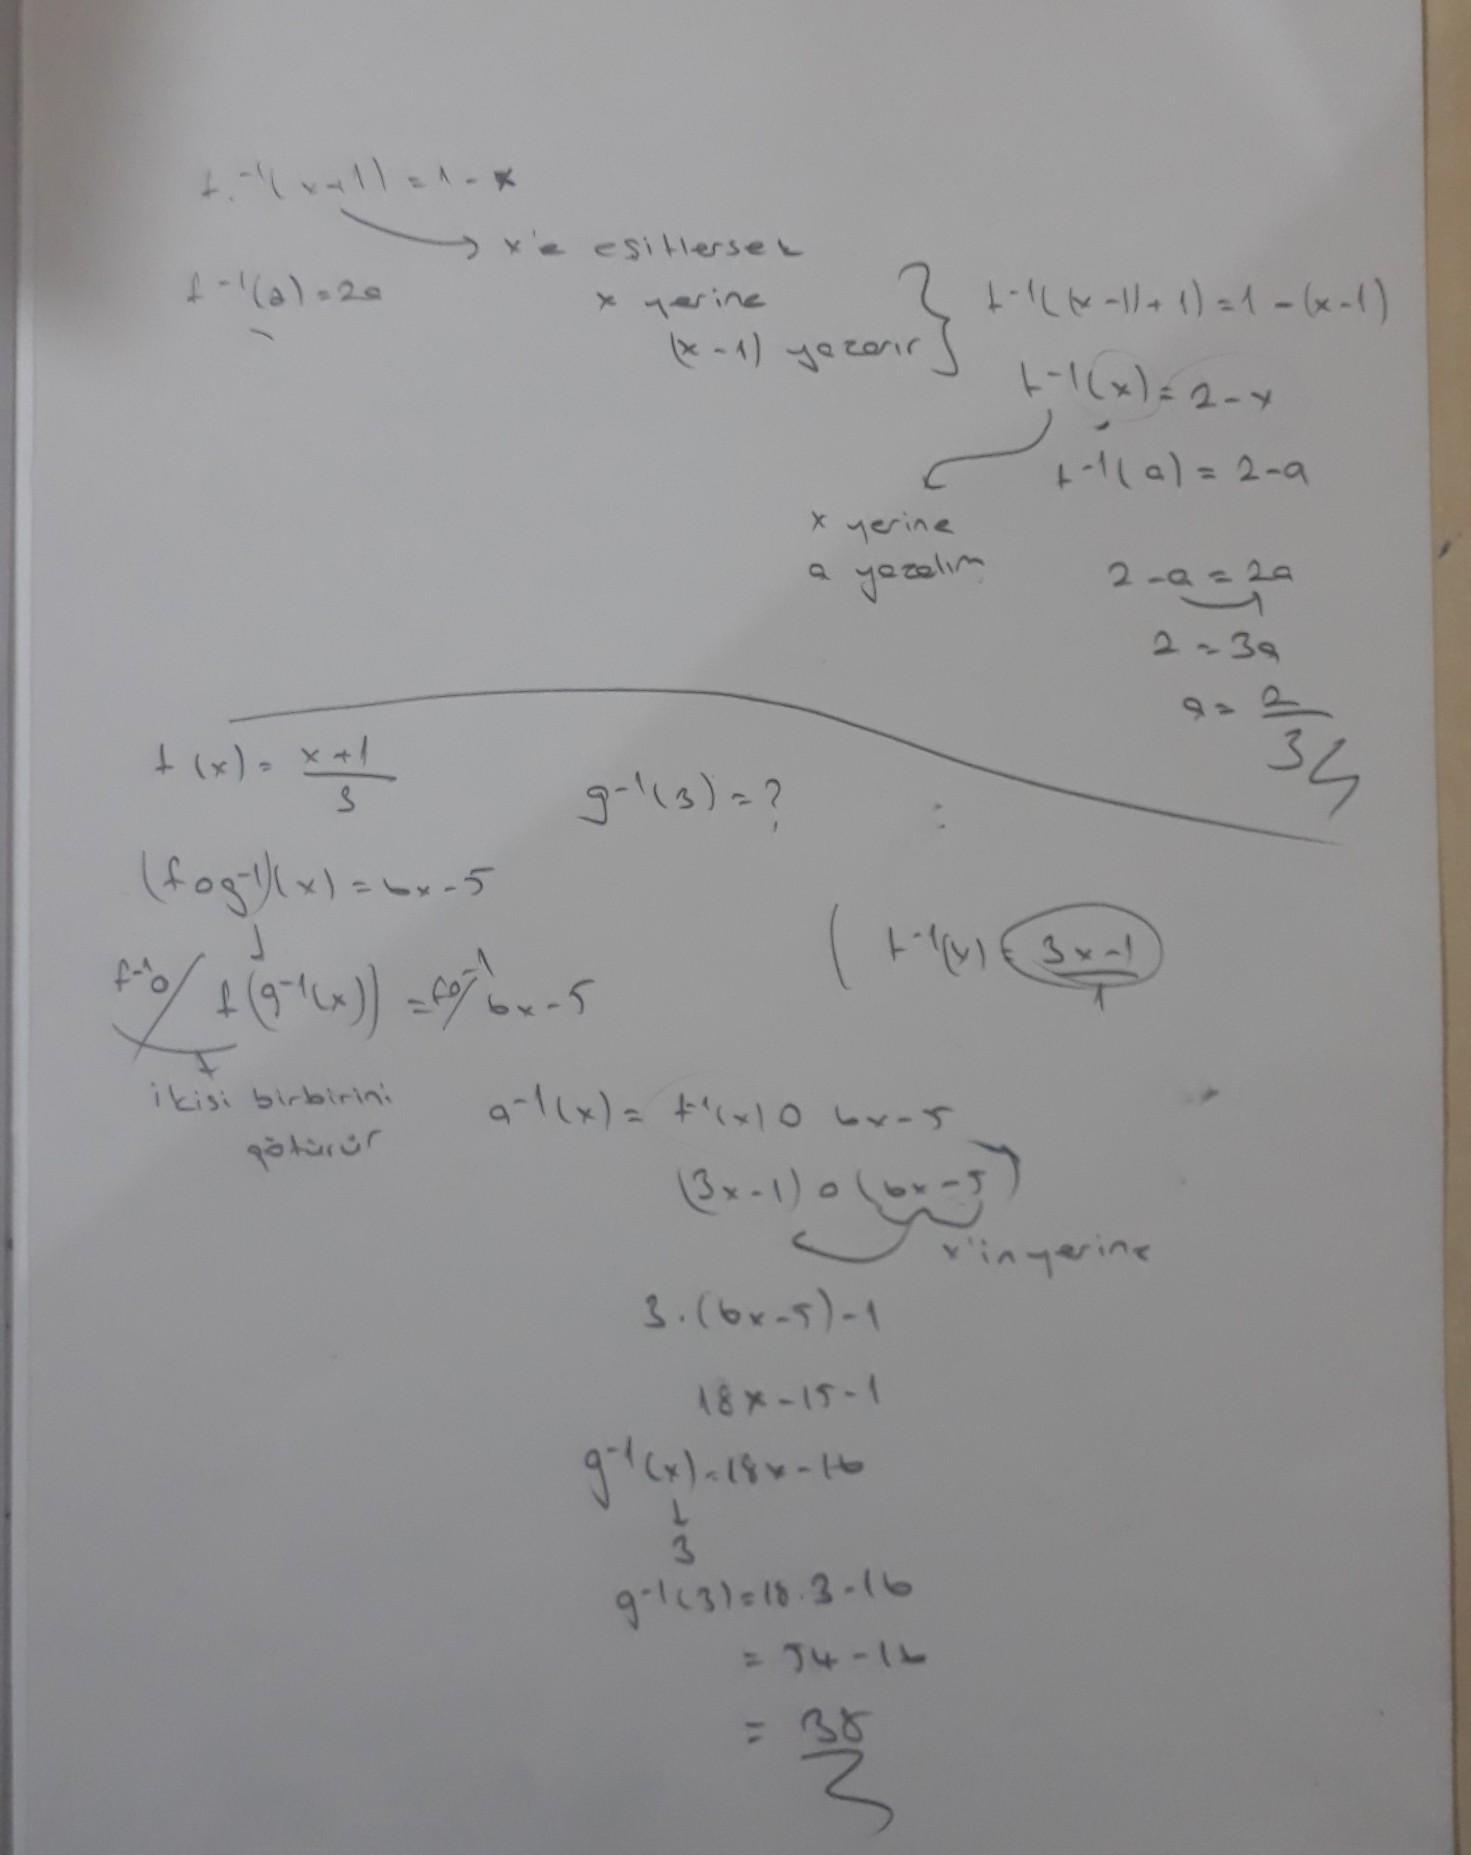 f⁻¹(x+1) = 1-x
x'e eşitlersek
f⁻¹(a) = 2a
x yerine
(x-1) yazarır
f⁻¹((x-1)+1) = 1-(x-1)
f⁻¹(x) = 2-x
f⁻¹(a) = 2-a
x yerine
a yazalım
2-a = 2a
2 = 3a
a = 2/3
f(x) = (x+1)/3
g⁻¹(3) = ?
(fog⁻¹)(x) = 6x-5
f⁻¹o/ f(g⁻¹(x)) = fo⁻¹/ 6x-5
(f⁻¹(x) = (3x-1)/1
ikisi birbirini
götürür
g⁻¹(x) = f⁻¹(x) o 6x-5
(3x-1) o (6x-5)
x'in yerine
3.(6x-5)-1
18x-15-1
g⁻¹(x) = 18x-16
3
g⁻¹(3) = 18.3-16
= 54-16
= 38